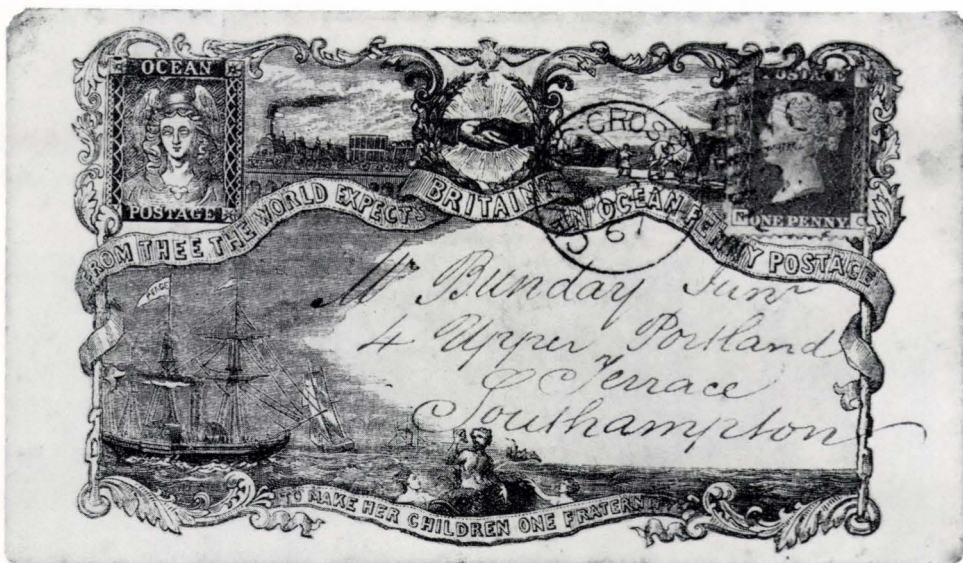 OCEAN
POSTAGE
POSTAGE
ONE PENNY
CROS
67
BRITAIN
FROM THEE THE WORLD EXPECTS
IN OCEAN PENNY POSTAGE
PEACE
Mr Bunday Junr
4 Upper Portland
Terrace
Southampton
TO MAKE HER CHILDREN ONE FRATERNITY